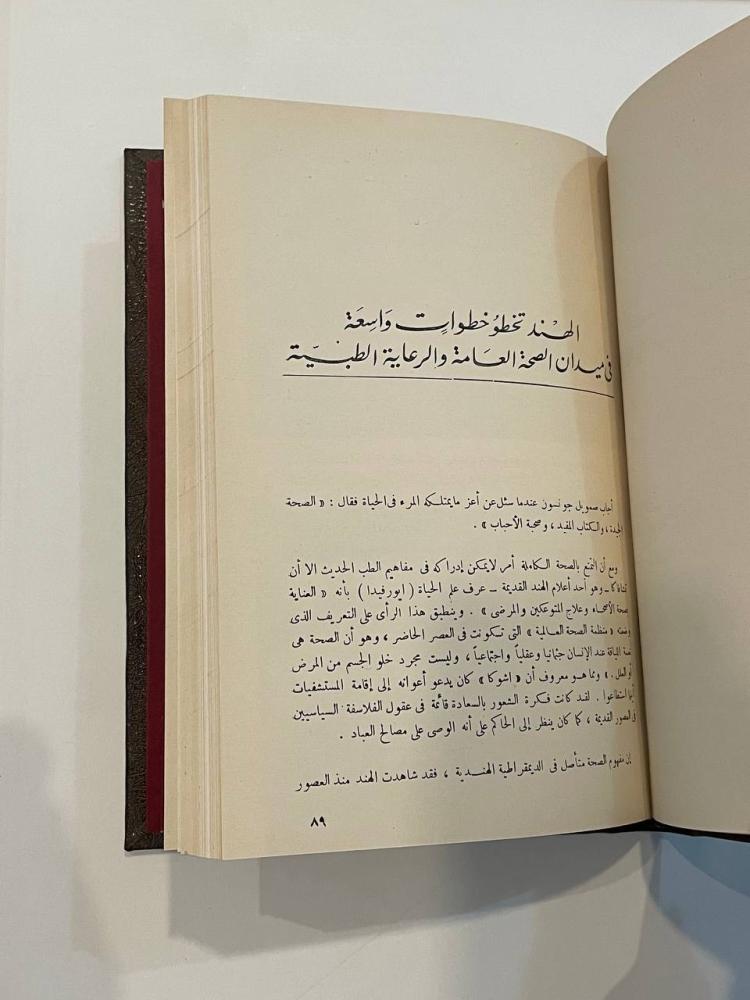 الهنْد تخطوُ خطواتٍ وَاسِعَة
فى ميدان الصحة العَامة والرعاية الطبيّة
أجاب صمويل جونسون عندما سئل عن أعز مايمتلكه المرء فى الحياة فقال : « الصحة
الجيدة ، والكتاب المفيد ، وصحبة الأحباب » .
ومع أن التمتع بالصحة الكاملة أمر لايمكن إدراكه فى مفاهيم الطب الحديث الا أن
ـ وهو أحد أعلام الهند القديمة ـ عرف علم الحياة ( ايورفيدا ) بأنه « العناية
بصحة الأصحاء وعلاج المتوعكين والمرضى » . وينطبق هذا الرأى على التعريف الذى
وضعته « منظمة الصحة العالمية » التى تكونت فى العصر الحاضر ، وهو أن الصحة هى
اللياقة عند الإنسان جثمانيا وعقلياً واجتماعياً ، وليست مجرد خلو الجسم من المرض
أو العلل . » ومما هو معروف أن « اشوكا » كان يدعو أعوانه إلى إقامة المستشفيات
أينما استطاعوا . لقد كانت فكرة الشعور بالسعادة قائمة فى عقول الفلاسفة السياسيين
فى العصور القديمة ، كما كان ينظر إلى الحاكم على أنه الوصى على مصالح العباد .
إن مفهوم الصحة متأصل فى الديمقراطية الهندية ، فقد شاهدت الهند منذ العصور
٨٩